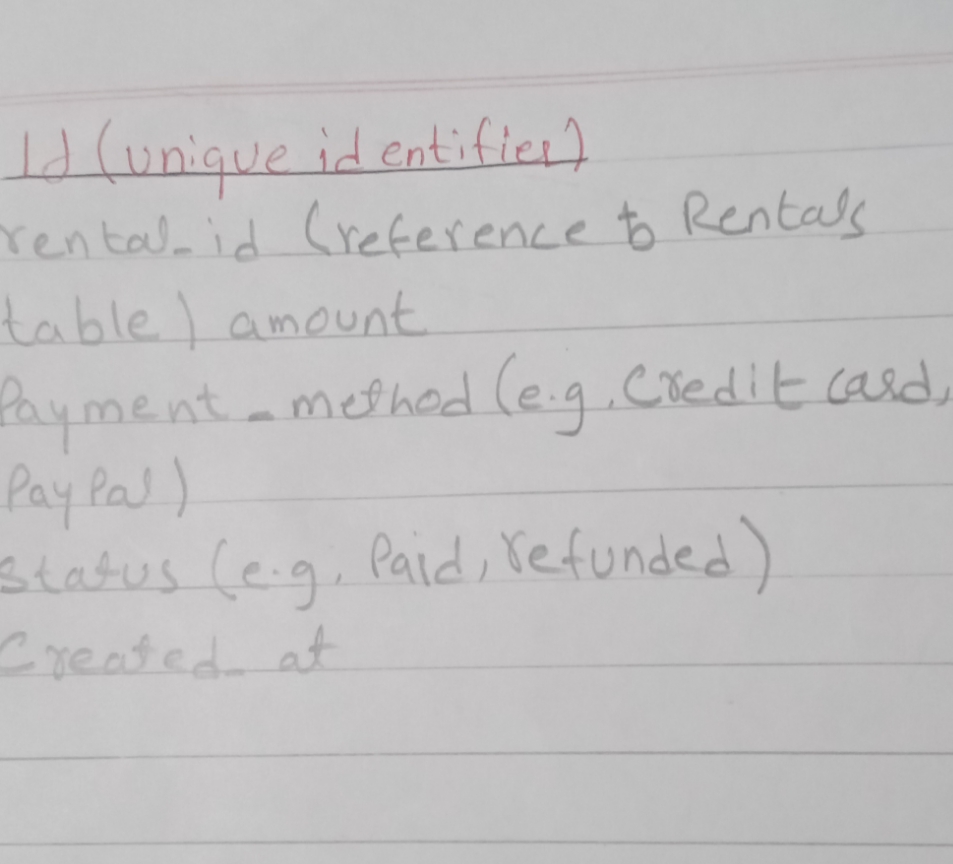 Id (unique identifier)
rental_id (reference to Rentals
table) amount
Payment_method (e.g. Credit card,
PayPal)
Status (e.g. Paid, refunded)
Created_at